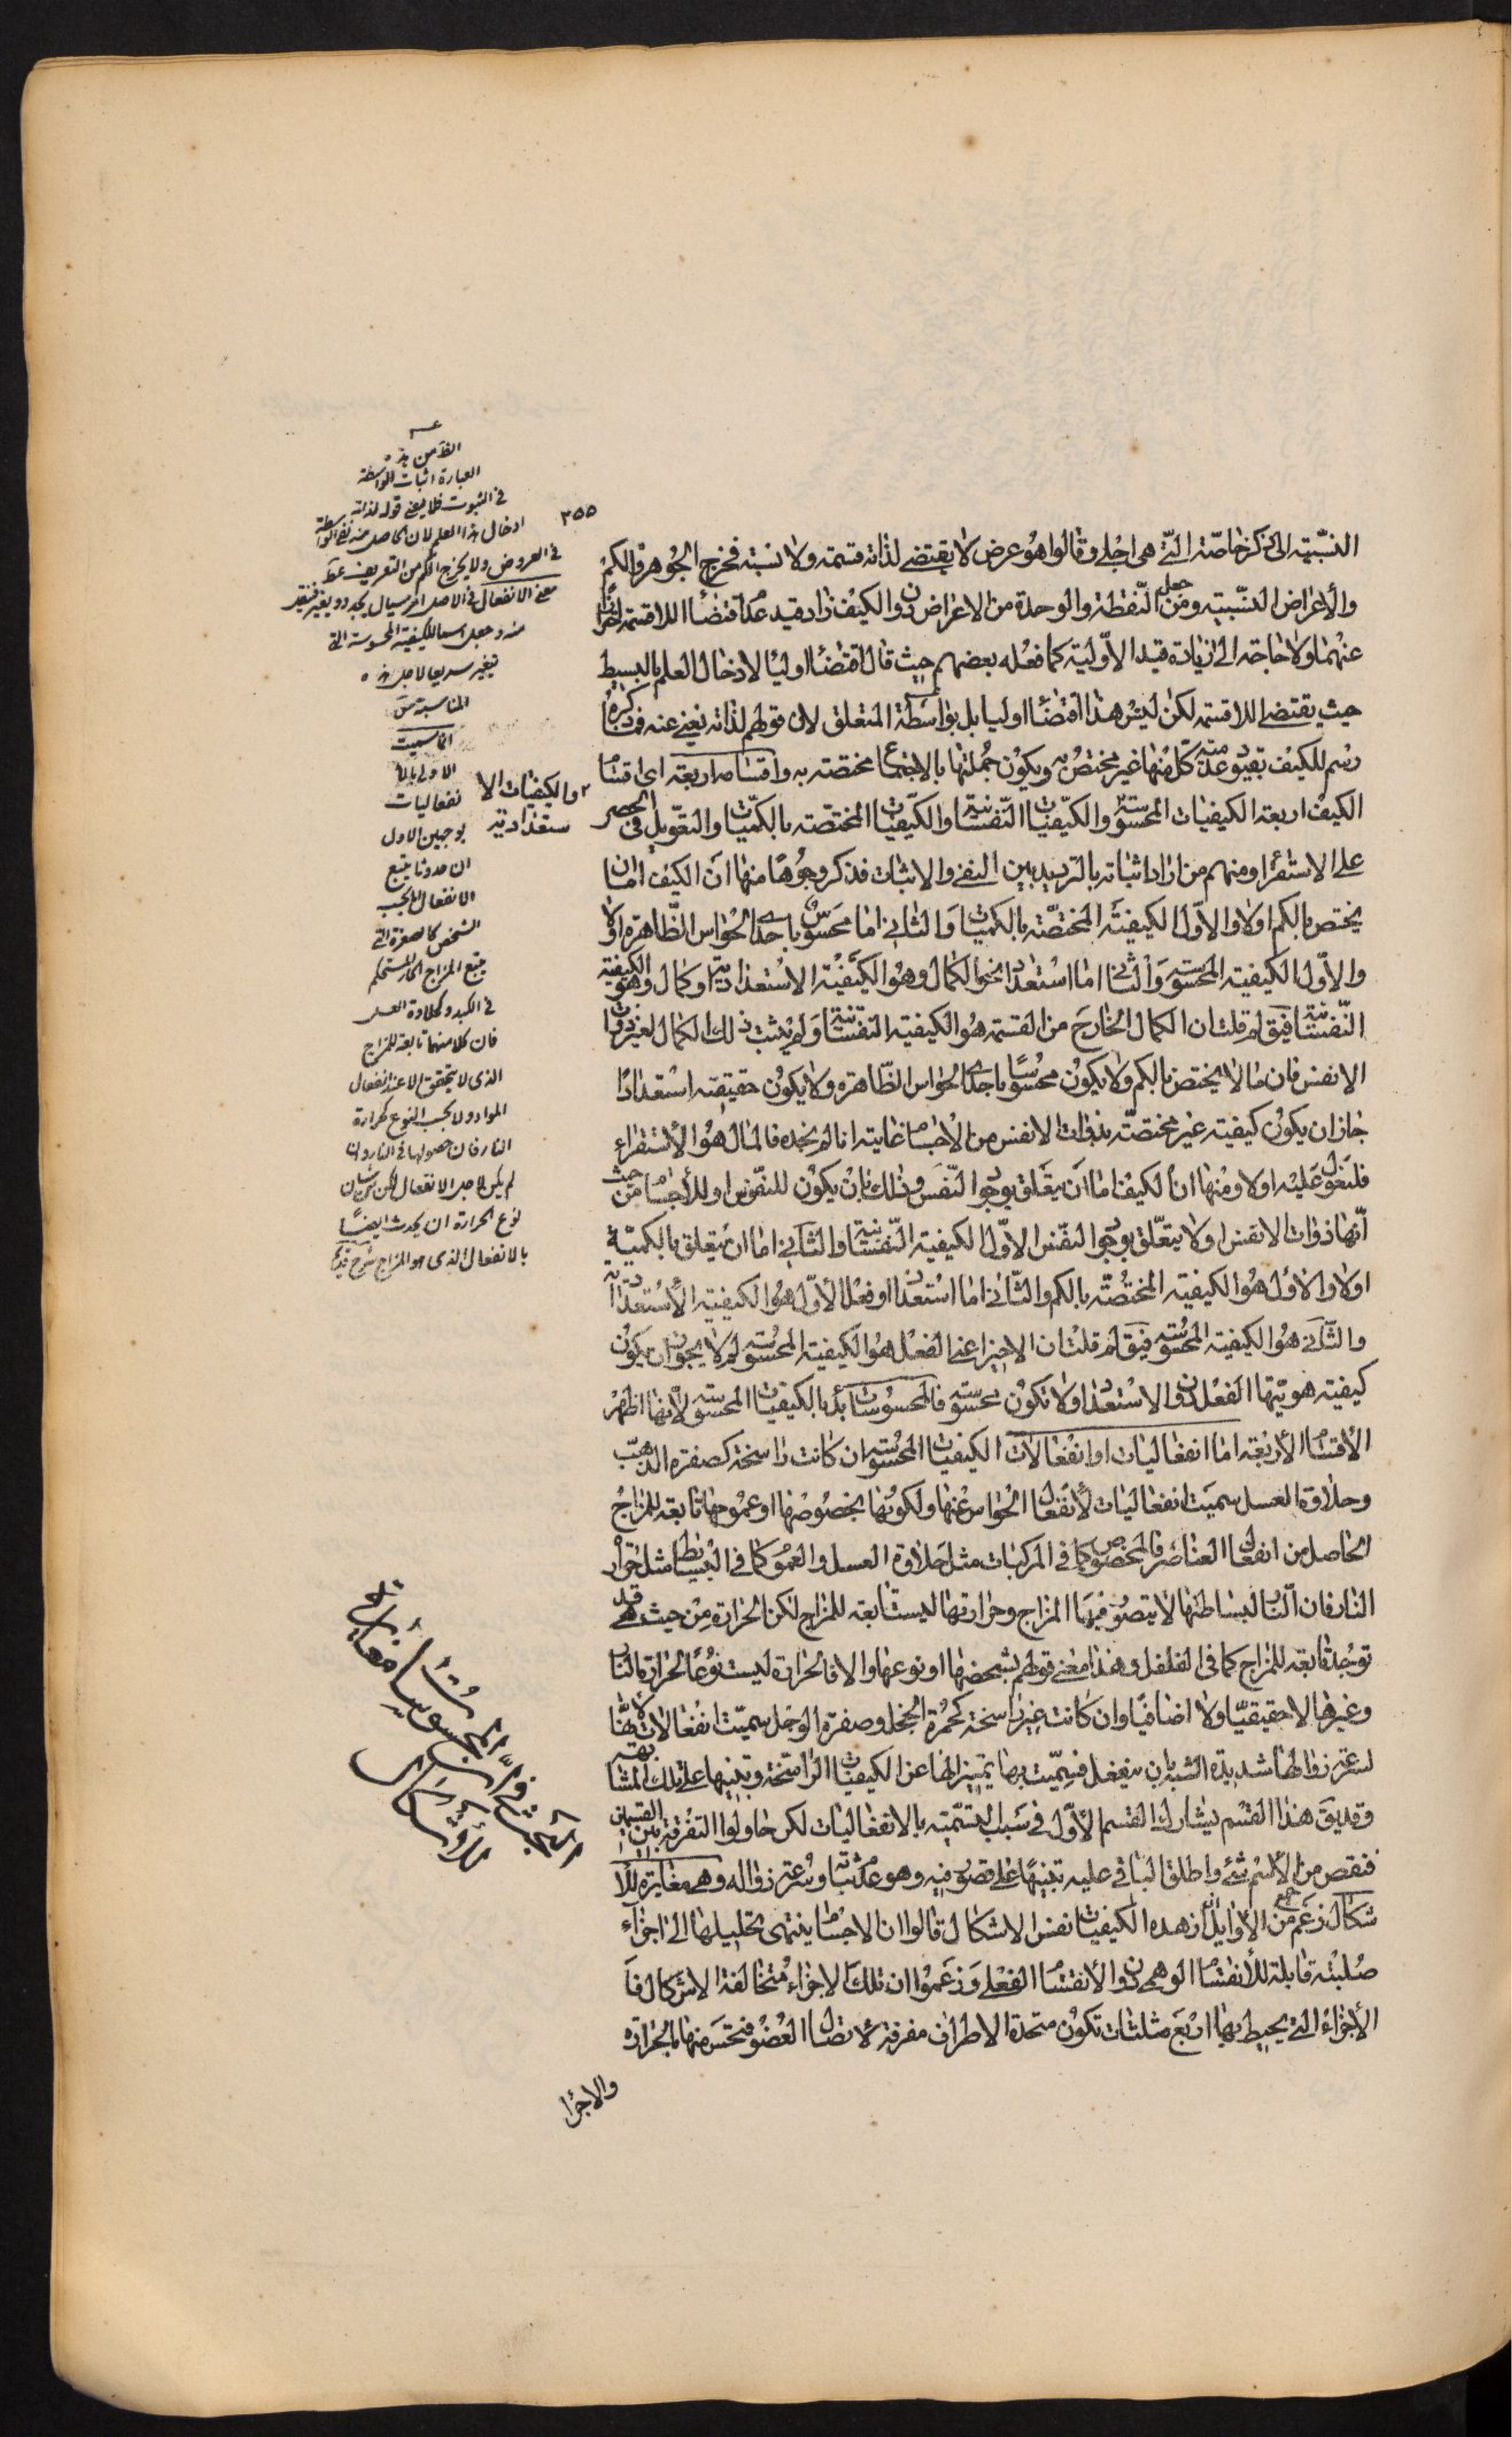 ٣٥٥
النسبية الى ذكر خاصته التي هي اجلى وقالوا هو عرض لا يقتضي لذاته قسمة ولا نسبة فخرج الجوهر والكم
والأعراض النسبية ومن جعل النقطة والوحدة من الاعراض دون الكيف زاد قيد عدم اقتضاء اللاقسمة احترازا
عنهما ولا حاجة الى زيادة قيد الأولية كما فعله بعضهم حيث قال اقتضاء اوليا لادخال العلم بالبسيط
حيث يقتضي اللاقسمة لكن ليس هذا اقتضاء اوليا بل بواسطة المتعلق لان قولهم لذاته يغني عنه
رسم للكيف بقيود عدمية كل منها غير مختص به ويكون جملتها بالاجتماع مختصة به واقسامه اربعة اي اقسام
الكيف اربعة الكيفيات المحسوسة والكيفيات النفسانية والكيفيات المختصة بالكميات والتعويل في الحصر
على الاستقراء ومنهم من اراد اثباته بالترديد بين النفي والاثبات فذكر وجوها منها ان الكيف اما ان
يختص بالكم اولا والاول الكيفية المختصة بالكميات والثاني اما محسوس باحدى الحواس الظاهرة اولا
والأول الكيفية المحسوسة والثاني اما استعداد نحو الكمال وهو الكيفية الاستعدادية او كمال وهو الكيفية
النفسانية فيق لم قلت ان الكمال الخارج من القسمة هو الكيفية النفسانية ولم يثبت ذلك الكمال لغير ذوات
الانفس فان ما لا يختص بالكم ولا يكون محسوسا باحدى الحواس الظاهرة ولا يكون حقيقته استعدادا
جاز ان يكون كيفية غير مختصة بذوات الانفس من الأجسام غايته انا لم نجده فالمال هو الاستقراء
فلنعول عليه اولا ومنها ان الكيف اما ان يتعلق بوجود النفس وذلك بان يكون للنفوس او للأجسام من حيث
أنها ذوات الانفس اولا يتعلق بوجود النفس الاول الكيفية النفسانية والثاني اما ان يتعلق بالكمية
اولا والاول هو الكيفية المختصة بالكم والثاني اما استعداد او فعل الأول هو الكيفية الاستعدادية
والثاني هو الكيفية المحسوسة فيق لم قلت ان الاخير اعني الفعل هو الكيفية المحسوسة لم لا يجوز ان يكون
كيفية هويتها الفعل دون الاستعداد ولا تكون محسوسة فالمحسوسات بدأ بالكيفيات المحسوسة لأنها اظهر
الأقسام الأربعة اما انفعاليات او انفعالات الكيفيات المحسوسة ان كانت راسخة كصفرة الذهب
وحلاوة العسل سميت انفعاليات لانفعال الحواس عنها ولكونها بخصوصها او عمومها تابعة للمزاج
الحاصل من انفعال العناصر فالخصوص كما في المركبات مثل حلاوة العسل والعموم كما في البسايط مثل حرارة
النار فان النار لبساطتها لا يتصور فيها المزاج وحرارتها ليست تابعة للمزاج لكن الحرارة من حيث هي قد
توجد تابعة للمزاج كما في الفلفل وهذا معنى قولهم بشخصها او نوعها والا فالحرارة ليست نوعا لحرارة النار
وغيرها لا حقيقيا ولا اضافيا وان كانت غير راسخة كحمرة الخجل وصفرة الوجل سميت انفعالات لأنها
لسرعة زوالها شديدة الشبه بان ينفعل فسميت بها تمييزا لها عن الكيفيات الراسخة وتنبيها على تلك المشابهة
وقد يق هذا القسم يشارك القسم الأول في سبب التسمية بالانفعاليات لكن حاولوا التفرقة بين القسمين
فنقص من الأسم شئ واطلق الباقي عليه تنبيها على قصور فيه وهو عدم ثباته وسرعة زواله وهي مغايرة للأ
شكال زعم جمع من الأوايل ان هذه الكيفيات نفس الاشكال قالوا ان الاجسام ينتهي تحليلها الى اجزاء
صلبة قابلة للأنقسام الوهمي دون الأنقسام الفعلي وزعموا ان تلك الاجزاء متخالفة الاشكال فا
الأجزاء التي يحيط بها اربع مثلثات تكون متحدة الاطراف مفرقة لاتصال العضو فنحس منها بالحرارة
والاجزا
الظ من هذه
العبارة اثبات الواسطة
في الثبوت فلا يغني قوله لذاته
ادخال هذا العلم لان الحاصل منه نفي الواسطة
في العروض ولا يخرج الكم من التعريف
معنى الانفعال في الاصل امر سيال يتجدد ويغير
منه وجعل اسما للكيفية المحسوسة التي
يتغير سريعا لاجل هذه
المناسبة
انما سميت
الاولى بالا
نفعاليات
بوجهين الاول
ان حدوثها يتبع
الانفعال اما بحسب
الشخص كالصفرة التي
يتبع المزاج الحار المستحكم
في الكبد وكحلاوة العسل
فان كلا منهما تابعة للمزاج
الذي لا يتحقق الا عند انفعال
المواد ولا بحسب النوع كحرارة
النار فان حصولها في النار وان
لم يكن لاجل الانفعال لكن من شان
نوع الحرارة ان يحدث ايضا
بالانفعال الذي هو المزاج شرح قديم
والكيفيات الا
ستعدادية
المبحث الثاني في ان المحسوسات مغايرة
للأشكال